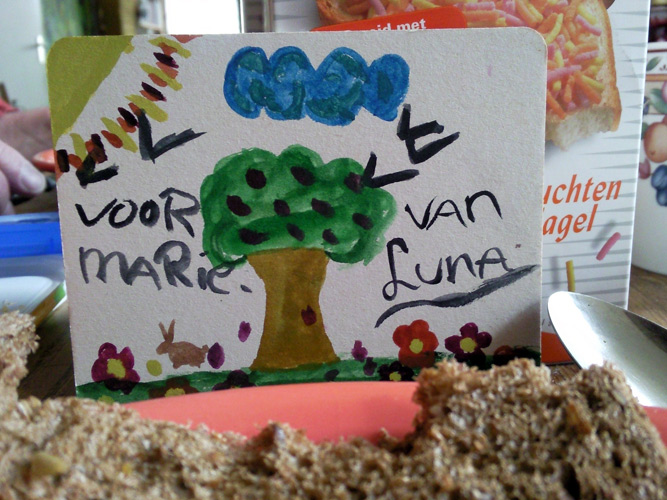 VOOR
MARIE.
VAN
Luna
met
uchten
agel